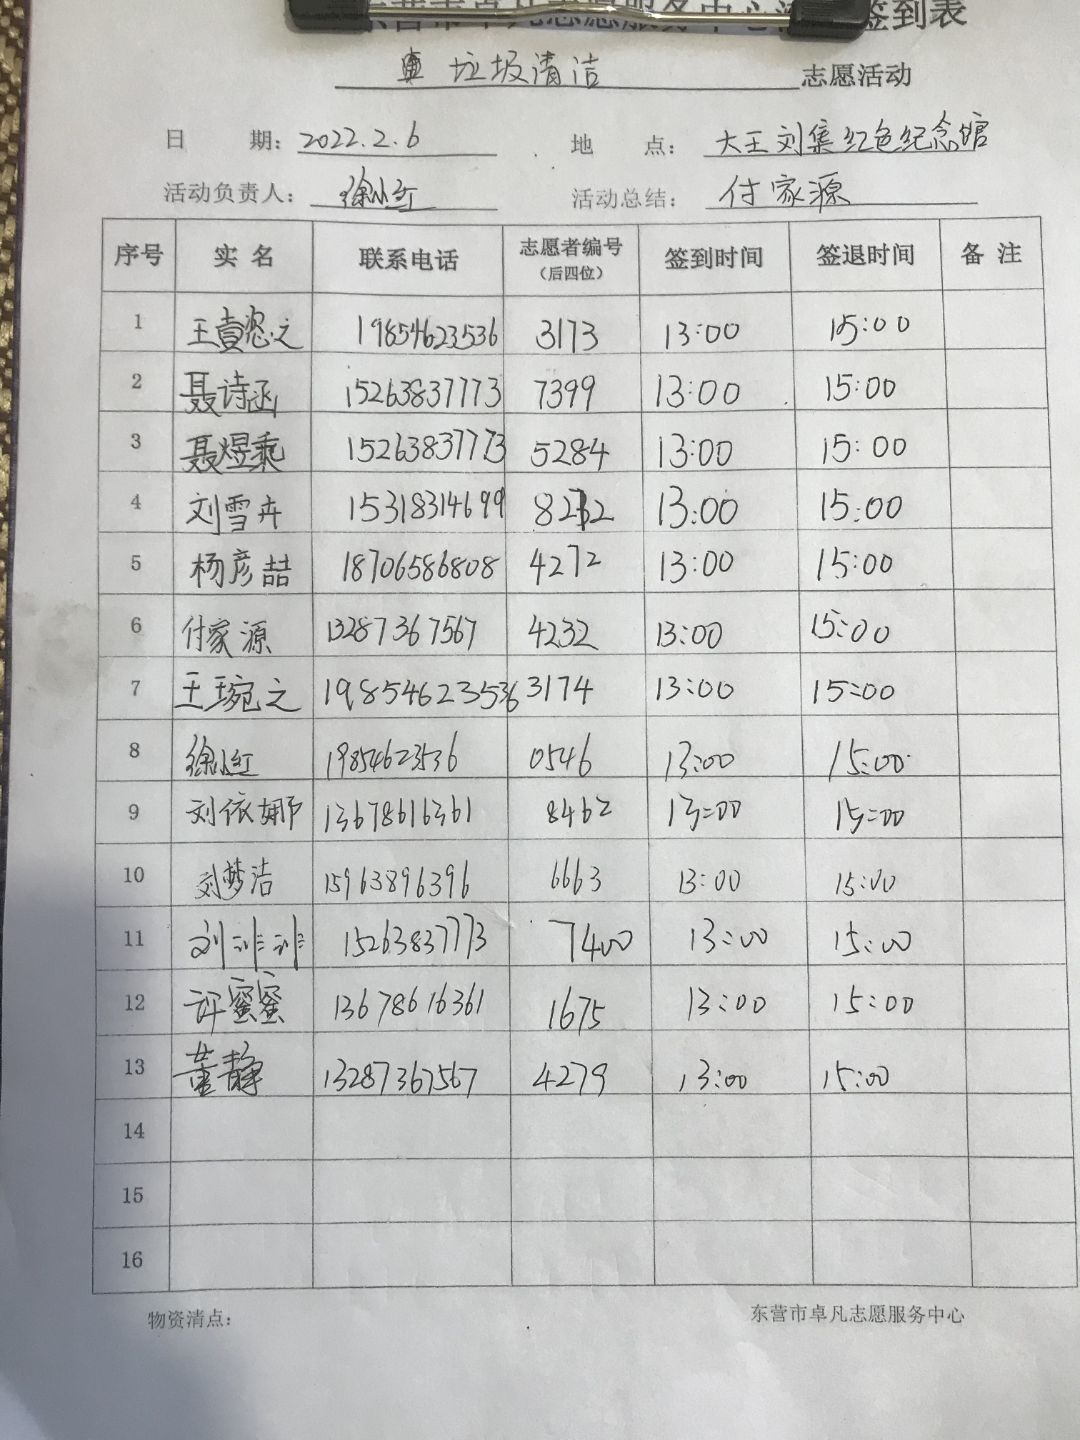 东营市卓凡志愿服务中心活动签到表
垃圾清洁 志愿活动
日 期： 2022.2.6 地 点： 大王刘集红色纪念馆
活动负责人： 徐小红 活动总结： 付家源
序号 实名 联系电话 志愿者编号（后四位） 签到时间 签退时间 备注
1 王 之 19854623536 3173 13:00 15:00
2 聂诗函 15263837773 7399 13:00 15:00
3 聂煜乘 15263837773 5284 13:00 15:00
4 刘雪卉 15318314699 13:00 15:00
5 杨彦喆 18706586808 4272 13:00 15:00
6 付家源 13287367567 4232 13:00 15:00
7 王琬之 19854623536 3174 13:00 15:00
8 徐小红 19854623536 0546 13:00 15:00
9 刘依娜 13678616361 8462 13:00 15:00
10 刘梦洁 15963896396 6663 13:00 15:00
11 刘非非 15263837773 7400 13:00 15:00
12 许蜜蜜 13678616361 1675 13:00 15:00
13 董静 13287367567 4279 13:00 15:00
14
15
16
物资清点： 东营市卓凡志愿服务中心